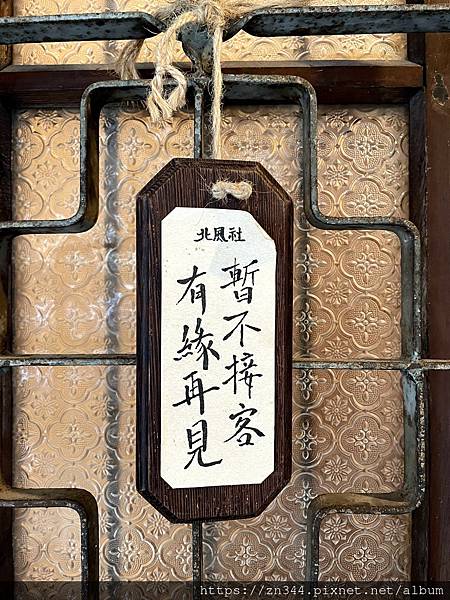 北風社
暫不接客
有緣再見
https://zn344.pixnet.net/album